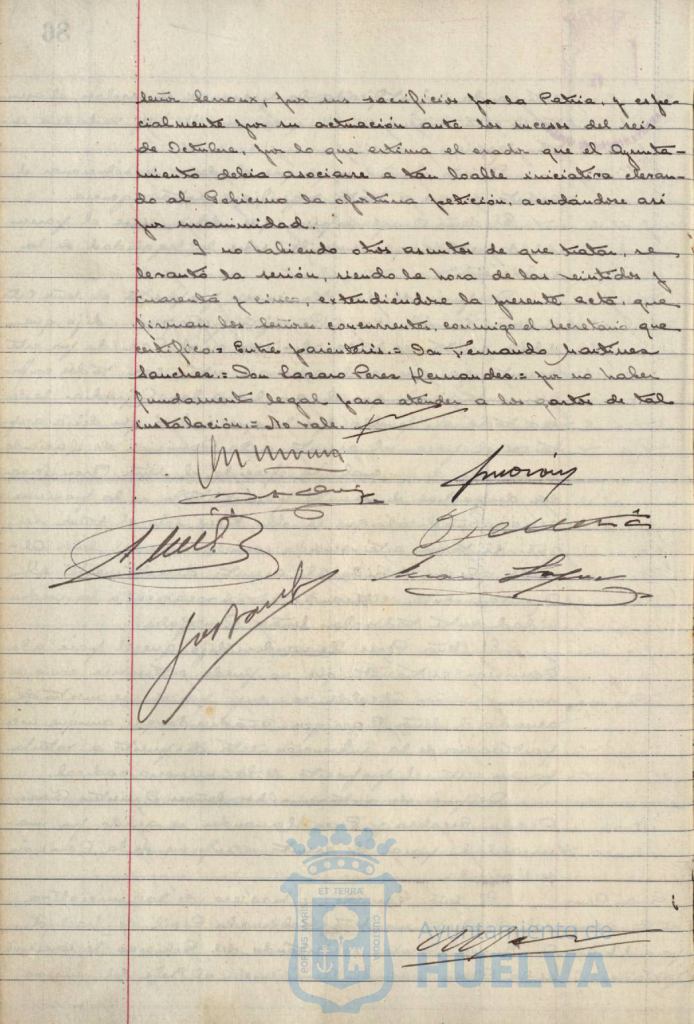 señor Lerroux, por sus sacrificios por la Patria, y espe-
cialmente por su actuación ante los sucesos del seis
de Octubre, por lo que estima el orador que el Ayunta-
miento debía asociarse a tan loable iniciativa elevan-
do al Gobierno la oportuna petición, acordándose así
por unanimidad.
Y no habiendo otros asuntos de que tratar, se
levantó la sesión, siendo la hora de las veintidos y
cuarenta y cinco, extendiéndose la presente acta, que
firman los señores concurrentes, conmigo el secretario que
certifico.= Entre paréntesis.= Don Fernando Martinez
Sanchez.= Don Lazaro Perez Hernandez.= por no haber
fundamento legal para atender a los gastos de tal
instalación.= No vale.
ET TERRÆ
PORTUS MARIS
CUSTODIA
Ayuntamiento de
HUELVA